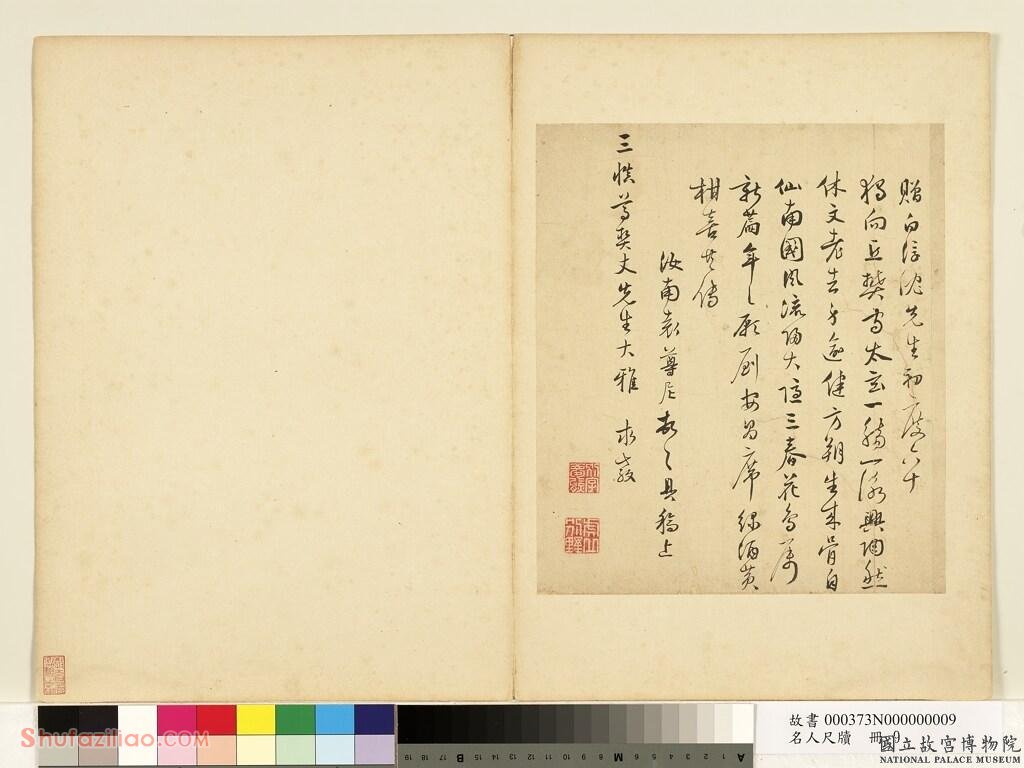 贈白浮沈先生初度八十
獨向丘樊守太玄一觴一詠興陶然
休文老去身逾健方朔生來骨自
仙南國風流歸大隱三春花鳥屬
新篇年〻願列安昌席綠酒黃
柑喜共傳
汝南袁尊尼頓〻具稿上
三愼尊契丈先生大雅 求教
故書 000373N000000009
名人尺牘 冊 9
國立故宮博物院
NATIONAL PALACE MUSEUM
Shufaziliao.com